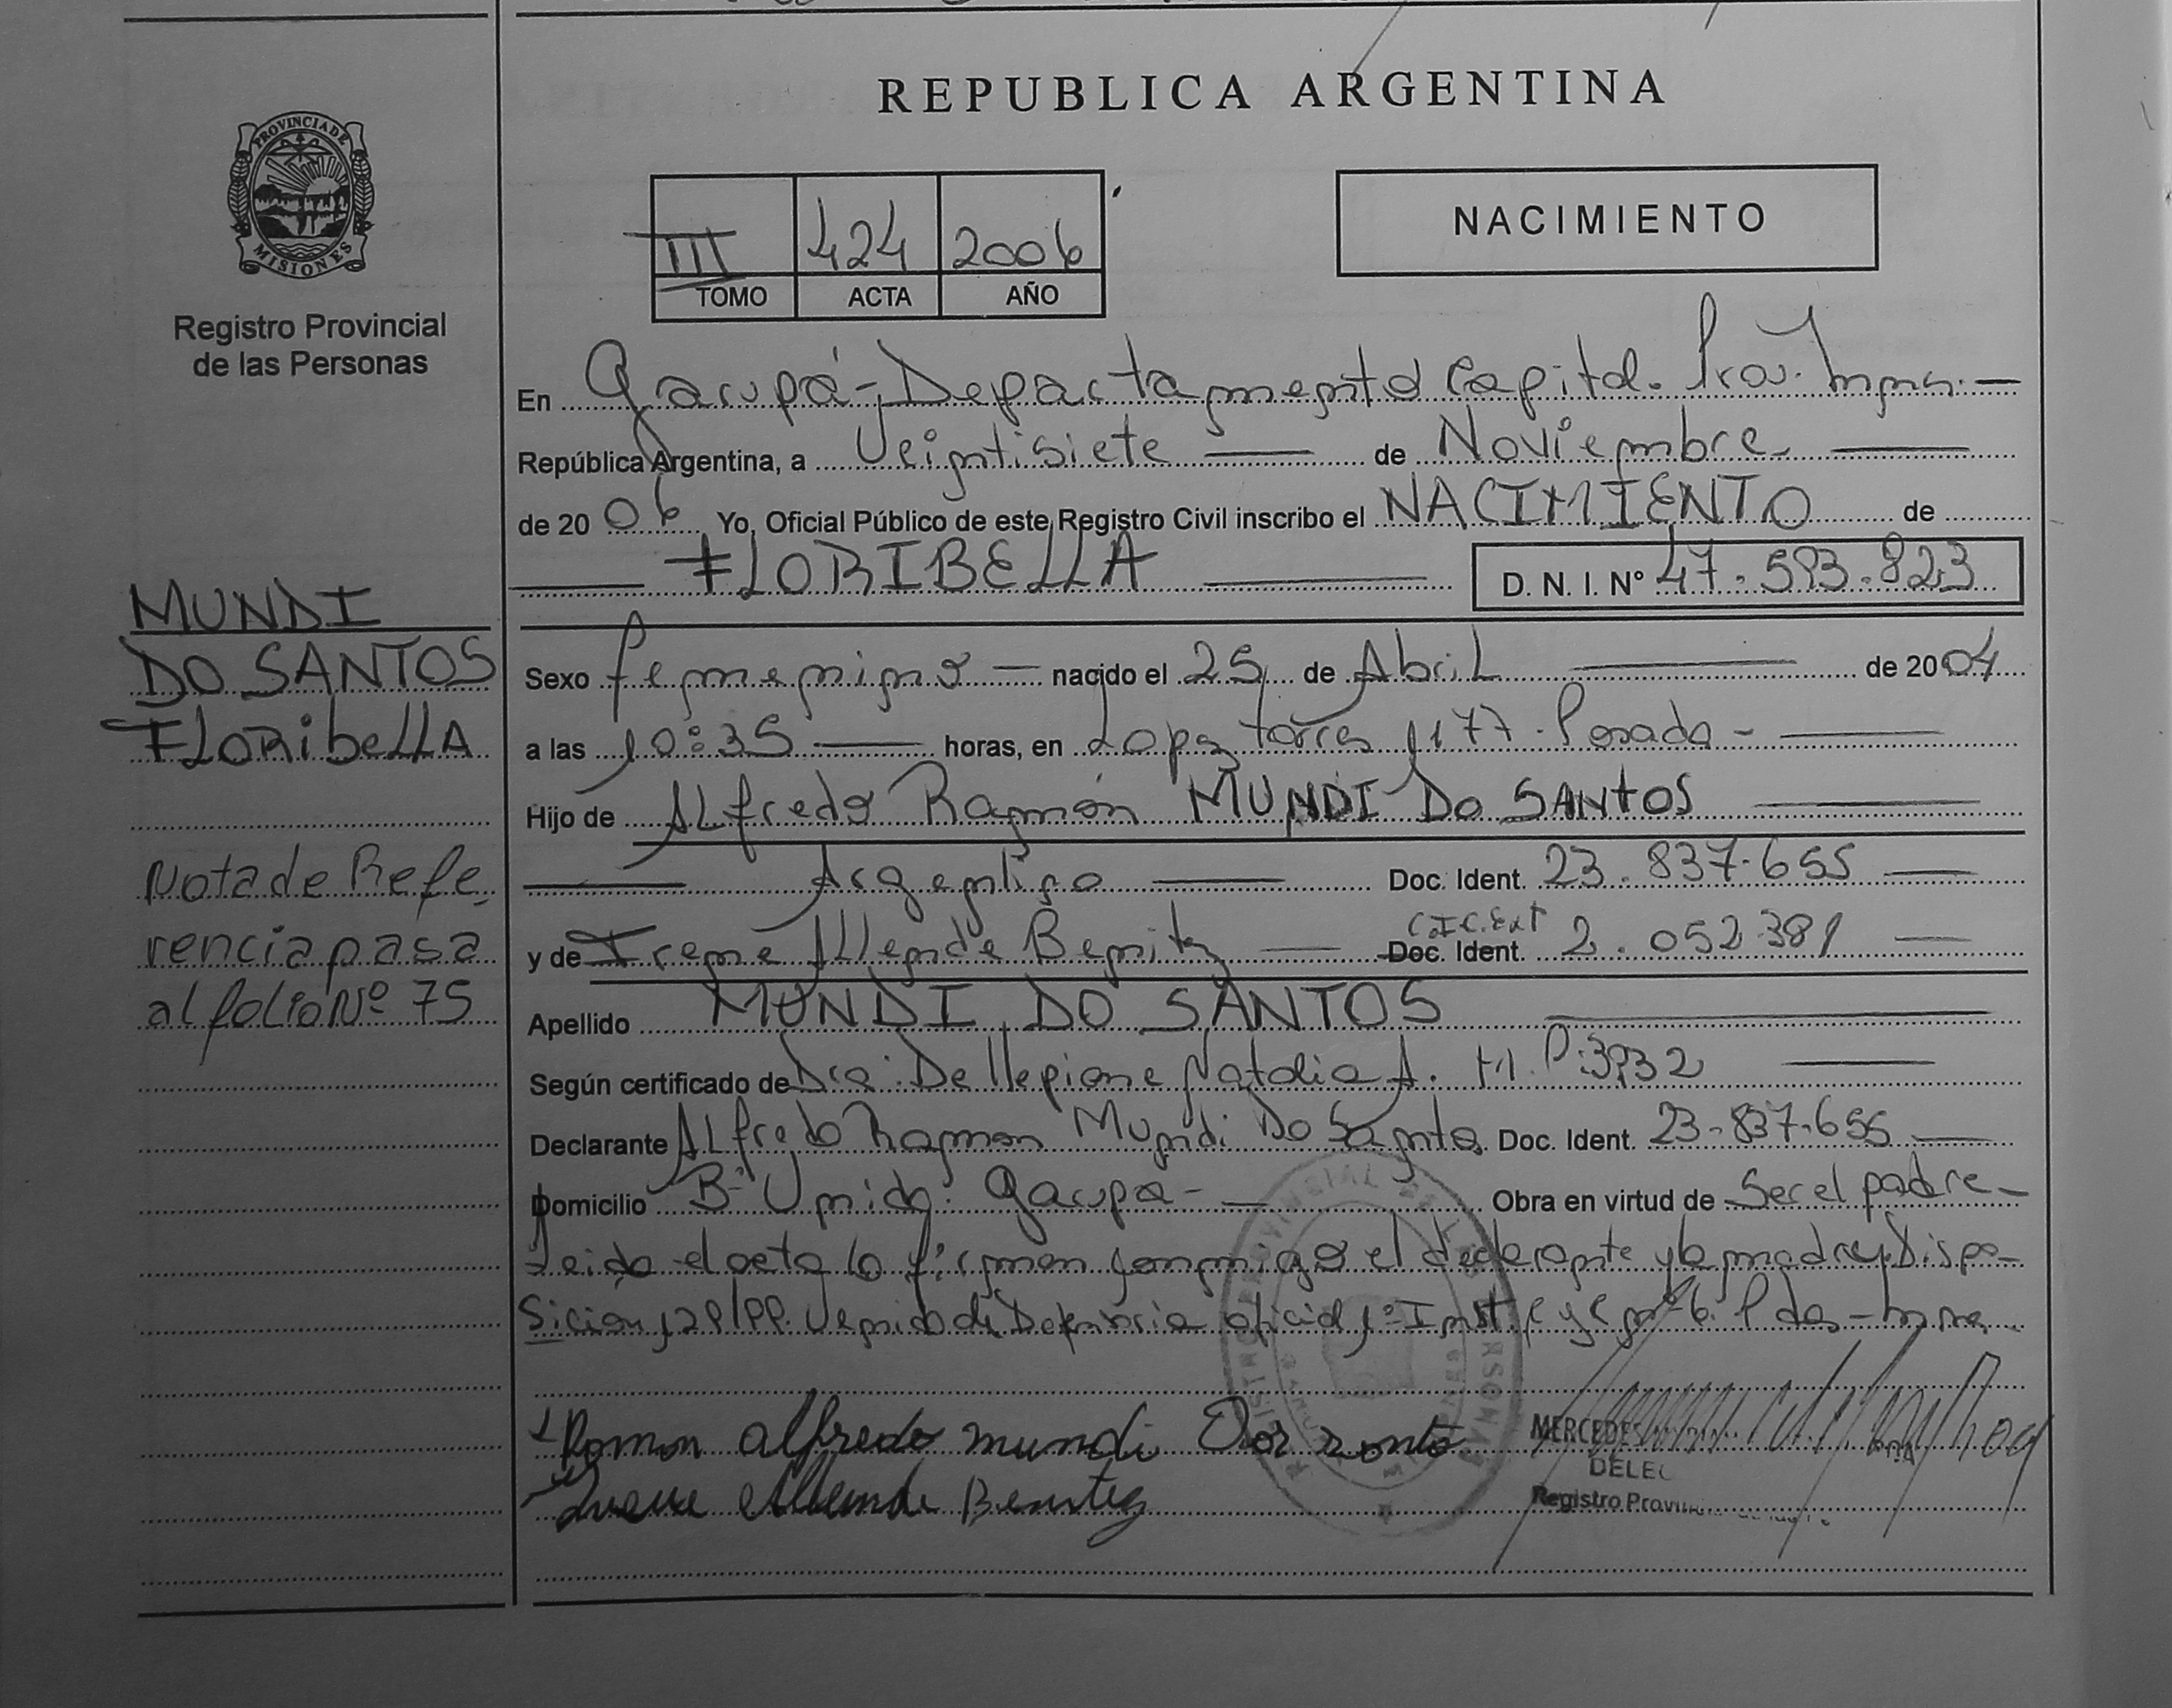 REPUBLICA ARGENTINA
PROVINCIA DE
MISIONES
Registro Provincial
de las Personas
III 424 2006
TOMO ACTA AÑO
NACIMIENTO
En Garupá - Departamento Capital. Prov. Mnes. —
República Argentina, a Veintisiete — de Noviembre —
de 20 06 Yo, Oficial Público de este Registro Civil inscribo el NACIMIENTO de
— FLORIBELLA — D. N. I. Nº 47.593.823
MUNDI
DO SANTOS
FLORibeLLA
Nota de Refe
rencia pasa
al folio Nº 75
Sexo femenino — nacido el 25 de Abril — de 20 04
a las 10:35 — horas, en Lopez torres 1177 - Posada - —
Hijo de ALfredo Ramón MUNDI DO SANtOS —
— Argentino — Doc. Ident. 23.837.655 —
y de Irene Allende Benitz — C.I.C.Ext Doc. Ident. 2.052.381 —
Apellido MUNDI DO SANTOS —
Según certificado de Dra. Dellepiane Natalia A. M.P.:3932 —
Declarante ALfredo Ramon Mundi Do Santos. Doc. Ident. 23.837.655 —
Domicilio Bº Unido. Garupa - — Obra en virtud de Ser el padre -
Leido el acta lo firman conmigo el declarante y la madre, Dispo-
sicion Venido de Defensoria oficial 1º Inst. C y C nº 6. Pdas - Mnes
Ramon alfredo mundi Dor
Irene Allende Benitez
MERCEDES
DELEC
Registro Provin